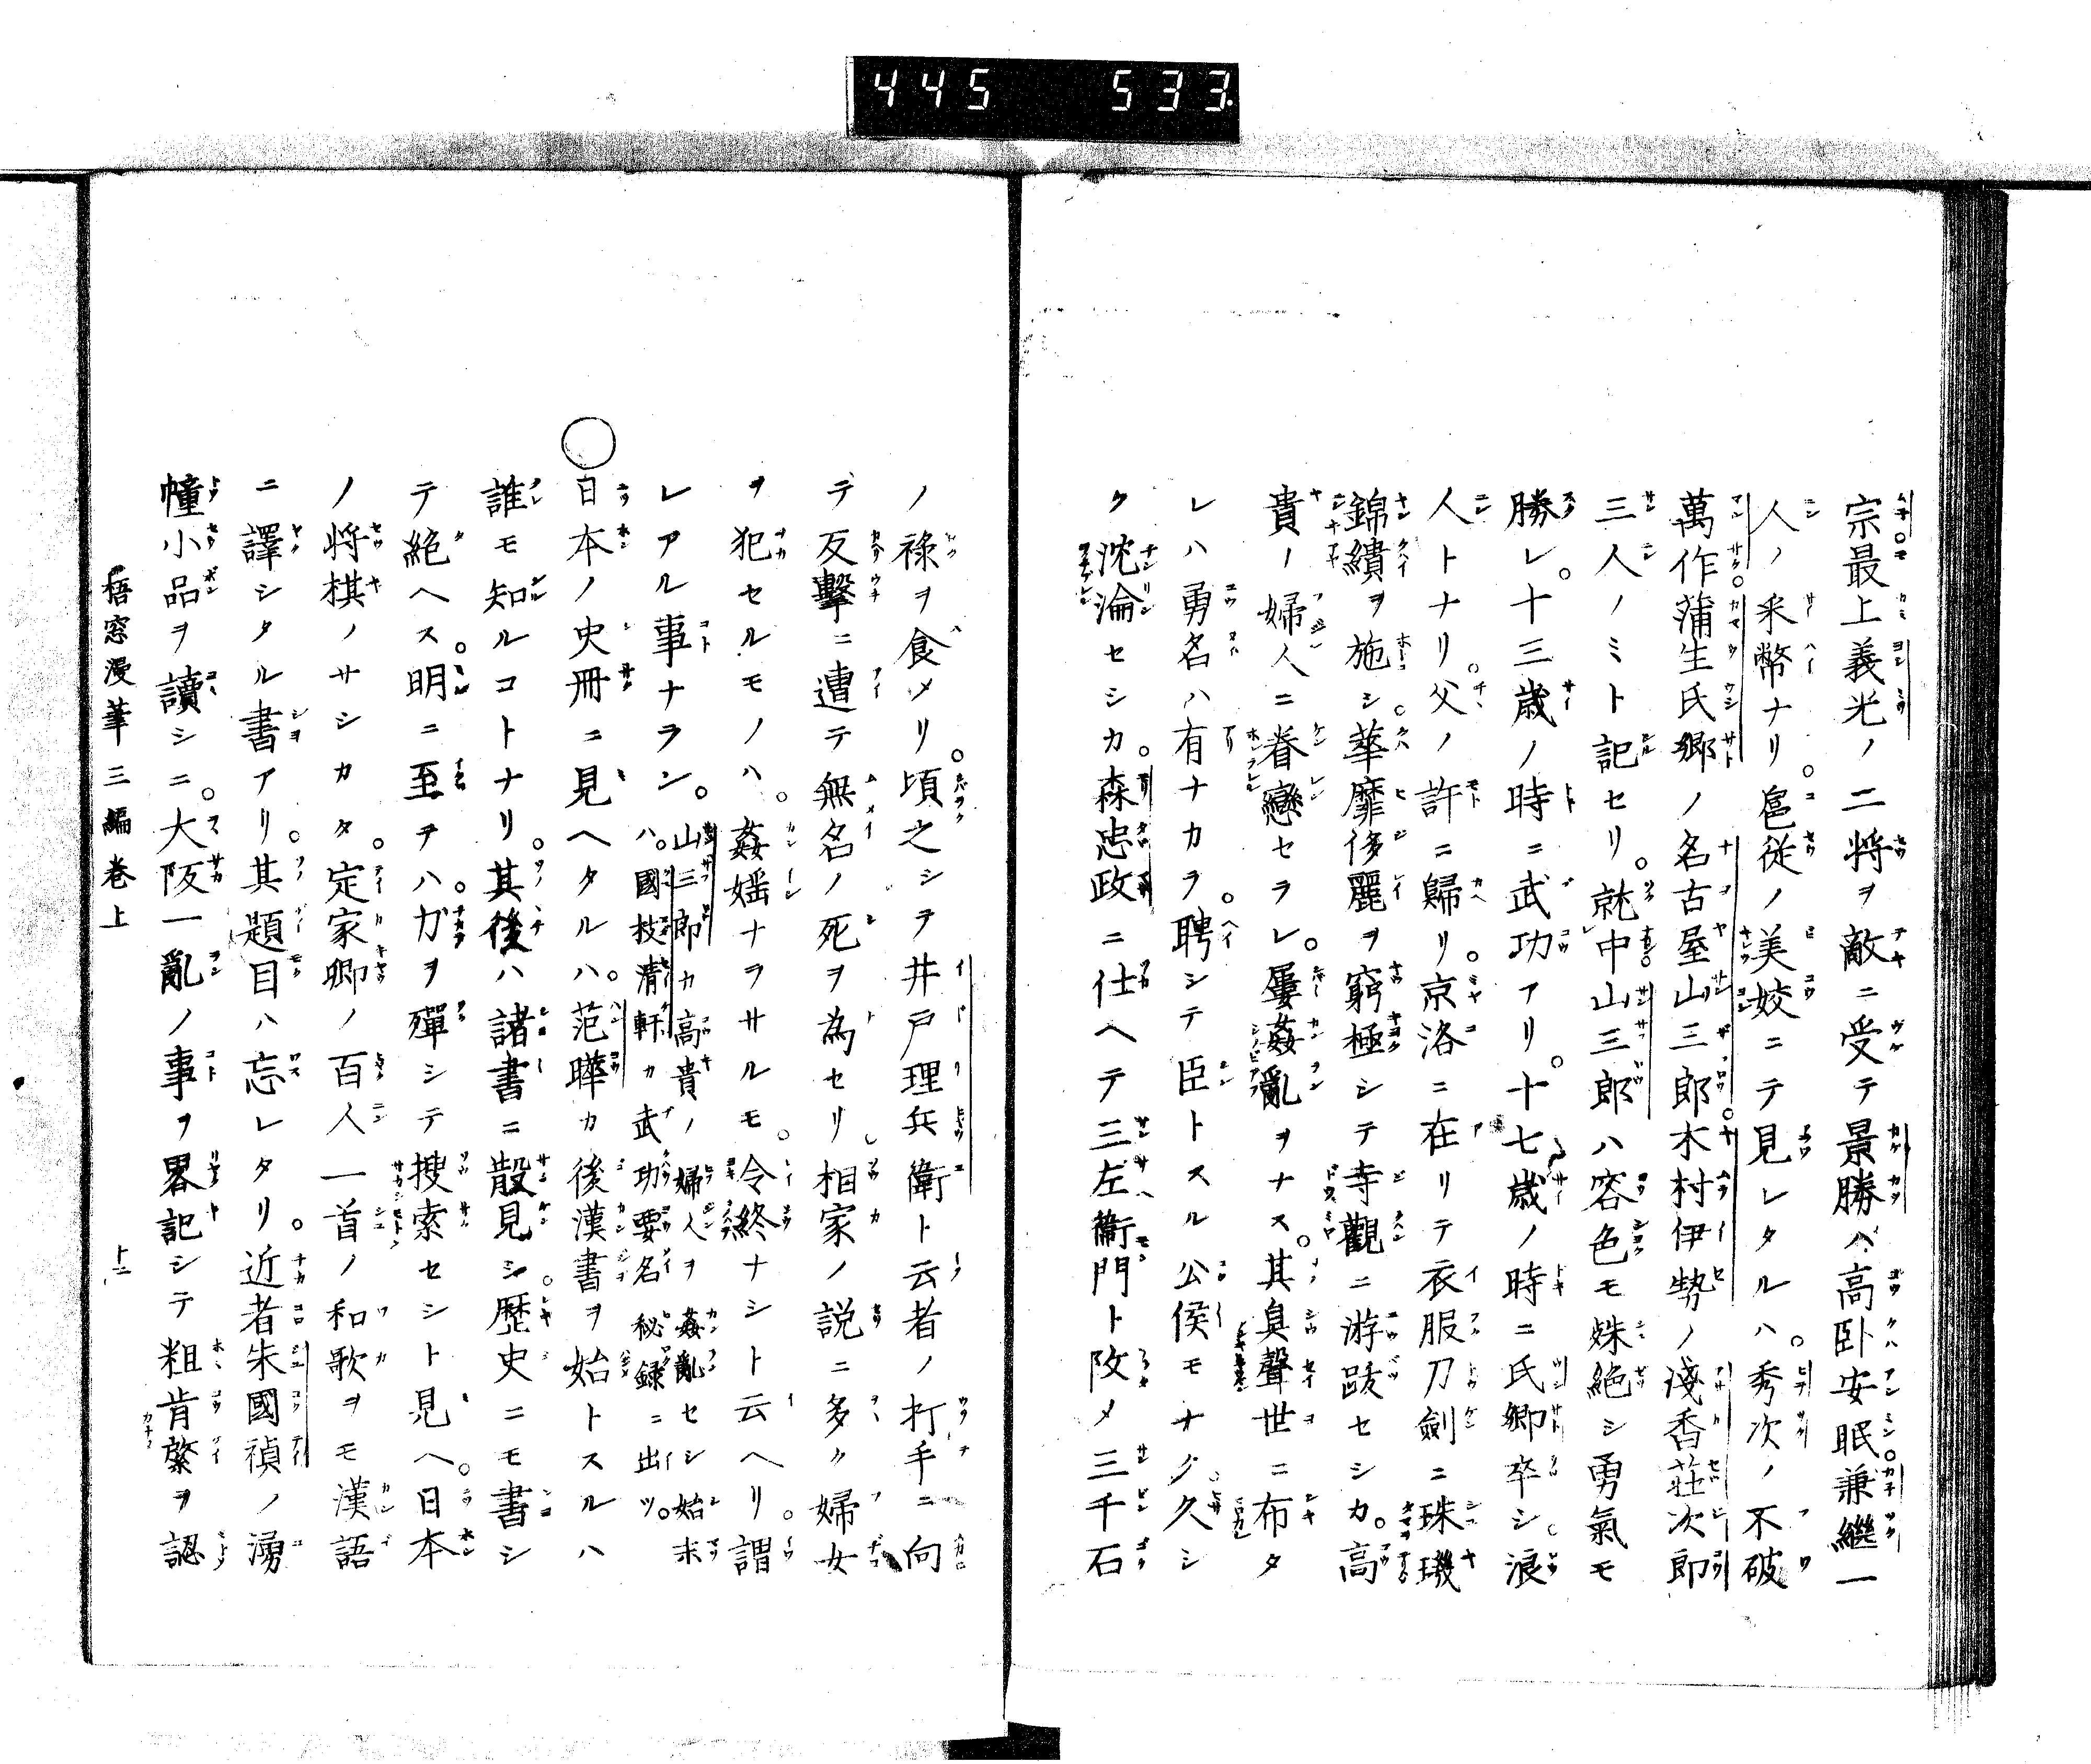 445 533
宗最上義光ノ二将ヲ敵ニ受テ景勝ハ高卧安眠兼繼一
人ノ釆幣ナリ。扈従ノ美姣ニテ見レタルハ。秀次ノ不破
萬作。蒲生氏郷ノ名古屋山三郎。木村伊勢ノ淺香荘次郎
三人ノミト記セリ。就中山三郎ハ容色モ姝絶シ勇氣モ
勝レ。十三歳ノ時ニ武功アリ。十七歳ノ時ニ氏郷卒シ。浪
人トナリ。父ノ許ニ歸リ。京洛ニ在リテ衣服刀劍ニ珠璣
錦繢ヲ施シ。華靡侈麗ヲ窮極シテ寺觀ニ游跋セシカ。高
貴ノ婦人ニ眷戀セラレ。屢姦亂ヲナス。其臭聲世ニ布タ
レハ勇名ハ有ナカラ。聘シテ臣トスル公侯モナク。久シ
ク沈淪セシカ。森忠政ニ仕ヘテ三左衞門ト改メ三千石
ノ祿ヲ食メリ。頃之シヲ井戸理兵衞ト云者ノ打手ニ向
テ反擊ニ遭テ無名ノ死ヲ為セリ。相家ノ説ニ多ク婦女
ヲ犯セルモノハ。姦婬ナラサルモ。令終ナシト云ヘリ。謂
レアル事ナラン。山三郎カ高貴ノ婦人ヲ姦亂セシ始末
ハ。國枝清軒カ武功要名秘録ニ出ツ。
日本ノ史冊ニ見ヘタルハ。范曄カ後漢書ヲ始トスルハ
誰モ知ルコトナリ。其後ハ諸書ニ散見シ。歴史ニモ書シ
テ絶ヘス。明ニ至ヲハ。力ヲ殫シテ捜索セシト見ヘ。日本
ノ将棋ノサシカタ。定家卿ノ百人一首ノ和歌ヲモ漢語
ニ譯シタル書アリ。其題目ハ忘レタリ。近者朱國禎ノ湧
幢小品ヲ讀シニ。大阪一亂ノ事ヲ畧記シテ粗肯綮ヲ認
梧窓漫筆三編巻上 十二